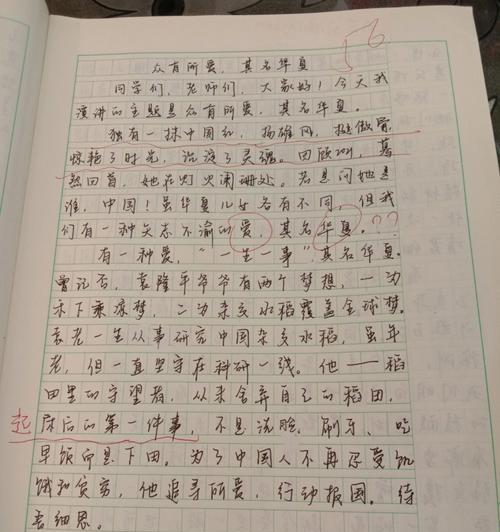 56
众有所爱，其名华夏
同学们，老师们，大家好！今天我
演讲的主题是众有所爱，其名华夏。
独有一抹中国红，扬雄风，挺傲骨，
惊艳了时光，沉淀了灵魂。回顾，蓦
然回首，她在灯火阑珊处。若是问她是
谁，中国！虽华夏儿女各有不同，但我
们有一种矢志不渝的爱，其名华夏。??
有一种爱，“一生一事”，其名华夏。
曾记否，袁隆平爷爷有两个梦想，一为
禾下乘凉梦，二为杂交水稻覆盖全球梦。
袁老一生从事研究中国杂交水稻，虽年
老，但一直坚守在科研一线。他——稻
田里的守望者，从未舍弃自己的稻田，
起床后的第一件事，不是洗脸、刷牙、吃
早饭而是下田。为了中国人不再忍受饥
饿和贫穷，他追寻所爱，行动报国。待
吾细思。